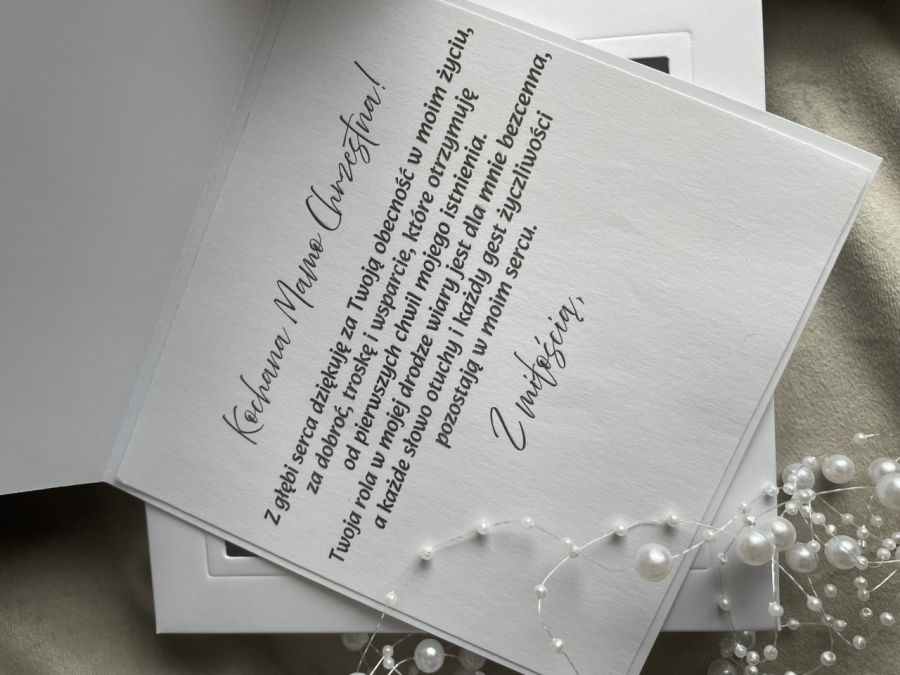 Kochana Mamo Chrzestna!
Z głębi serca dziękuję za Twoją obecność w moim życiu,
za dobroć, troskę i wsparcie, które otrzymuję
od pierwszych chwil mojego istnienia.
Twoja rola w mojej drodze wiary jest dla mnie bezcenna,
a każde słowo otuchy i każdy gest życzliwości
pozostają w moim sercu.
Z miłością,